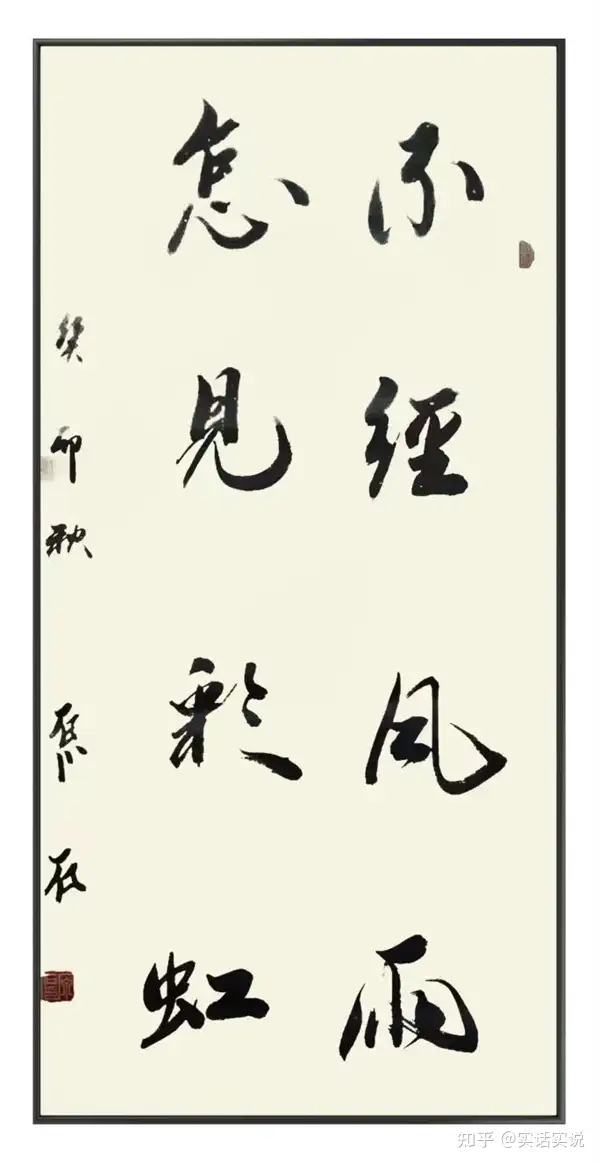 不經風雨
怎見彩虹
癸卯秋
知乎 @实话实说